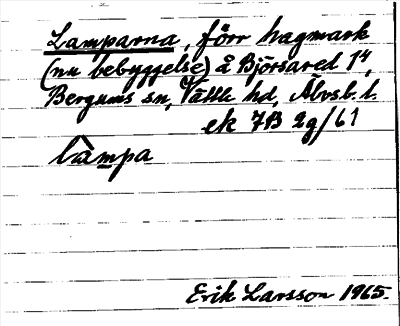 Lamparna, förr hagmark
(nu bebyggelse) å Björsared 1⁴,
Bergums sn, Vättle hd, Älvsb. l.
ek 7B 2g/61
lampa
Erik Larsson 1965.